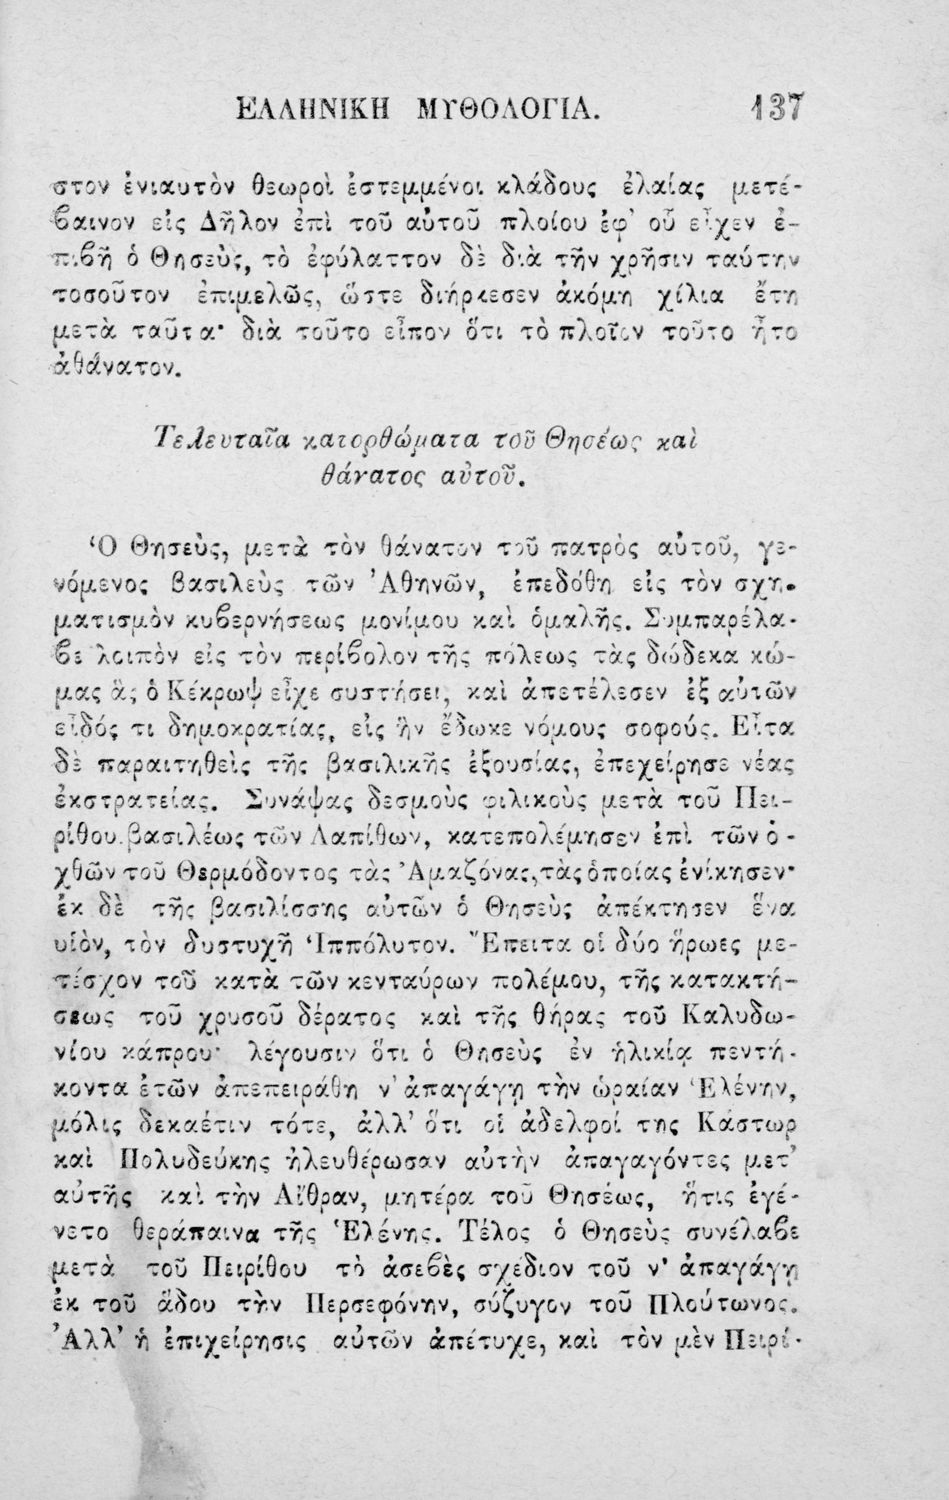 ΕΛΛΗΝΙΚΗ ΜΥΘΟΛΟΓΙΑ. 137
στον ἐνιαυτὸν θεωροὶ ἐστεμμένοι κλάδους ἐλαίας μετέ-
βαινον εἰς Δῆλον ἐπὶ τοῦ αὐτοῦ πλοίου ἐφ' οὗ εἶχεν ἐ-
πιβῆ ὁ Θησεὺς, τὸ ἐφύλαττον δὲ διὰ τὴν χρῆσιν ταύτην
τοσοῦτον ἐπιμελῶς, ὥστε διήρκεσεν ἀκόμη χίλια ἔτη
μετὰ ταῦτα· διὰ τοῦτο εἶπον ὅτι τὸ πλοῖον τοῦτο ἦτο
ἀθάνατον.
Τελευταῖα κατορθώματα τοῦ Θησέως καὶ
θάνατος αὐτοῦ.
Ὁ Θησεὺς, μετὰ τὸν θάνατον τοῦ πατρὸς αὐτοῦ, γε-
νόμενος βασιλεὺς τῶν Ἀθηνῶν, ἐπεδόθη εἰς τὸν σχη-
ματισμὸν κυβερνήσεως μονίμου καὶ ὁμαλῆς. Συμπαρέλα-
βε λοιπὸν εἰς τὸν περίβολον τῆς πόλεως τὰς δώδεκα κώ-
μας ἃς ὁ Κέκρωψ εἶχε συστήσει, καὶ ἀπετέλεσεν ἐξ αὐτῶν
εἶδός τι δημοκρατίας, εἰς ἣν ἔδωκε νόμους σοφούς. Εἶτα
δὲ παραιτηθεὶς τῆς βασιλικῆς ἐξουσίας, ἐπεχείρησε νέας
ἐκστρατείας. Συνάψας δεσμοὺς φιλικοὺς μετὰ τοῦ Πει-
ρίθου βασιλέως τῶν Λαπίθων, κατεπολέμησεν ἐπὶ τῶν ὀ-
χθῶν τοῦ Θερμόδοντος τὰς Ἀμαζόνας, τὰς ὁποίας ἐνίκησεν·
ἐκ δὲ τῆς βασιλίσσης αὐτῶν ὁ Θησεὺς ἀπέκτησεν ἕνα
υἱὸν, τὸν δυστυχῆ Ἱππόλυτον. Ἔπειτα οἱ δύο ἥρωες με-
τέσχον τοῦ κατὰ τῶν κενταύρων πολέμου, τῆς κατακτή-
σεως τοῦ χρυσοῦ δέρατος καὶ τῆς θήρας τοῦ Καλυδω-
νίου κάπρου· λέγουσιν ὅτι ὁ Θησεὺς ἐν ἡλικίᾳ πεντή-
κοντα ἐτῶν ἀπεπειράθη ν' ἀπαγάγῃ τὴν ὡραίαν Ἑλένην,
μόλις δεκαέτιν τότε, ἀλλ' ὅτι οἱ ἀδελφοί της Κάστωρ
καὶ Πολυδεύκης ἠλευθέρωσαν αὐτὴν ἀπαγαγόντες μετ'
αὐτῆς καὶ τὴν Αἴθραν, μητέρα τοῦ Θησέως, ἥτις ἐγέ-
νετο θεράπαινα τῆς Ἑλένης. Τέλος ὁ Θησεὺς συνέλαβε
μετὰ τοῦ Πειρίθου τὸ ἀσεβὲς σχέδιον τοῦ ν' ἀπαγάγῃ
ἐκ τοῦ ᾅδου τὴν Περσεφόνην, σύζυγον τοῦ Πλούτωνος.
Ἀλλ' ἡ ἐπιχείρησις αὐτῶν ἀπέτυχε, καὶ τὸν μὲν Πειρί-